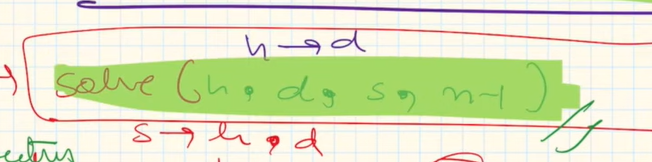 h → d
solve (h, d, s, n-1)
s → h, d